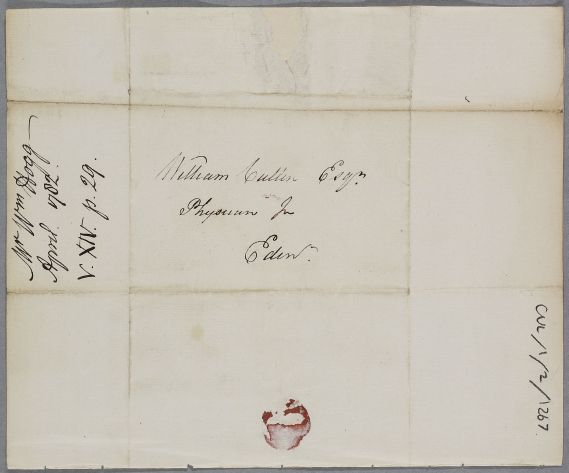 Mr Wm Hogg
April 1782.
V. XIV. p. 29.
William Cullen Esqr
Physician In
Edinr
CUL/1/2/1267